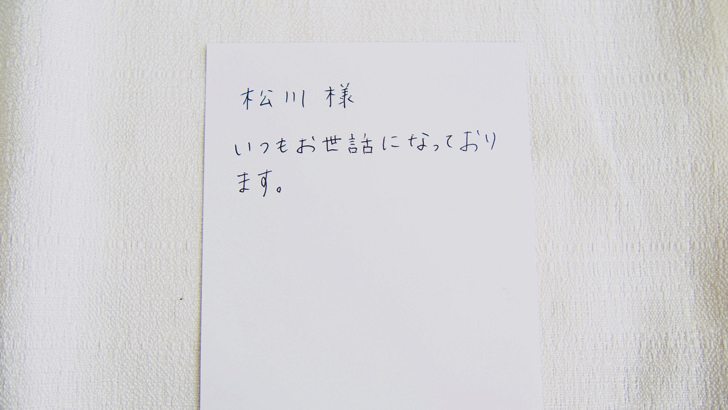 松川 様
いつもお世話になっており
ます。